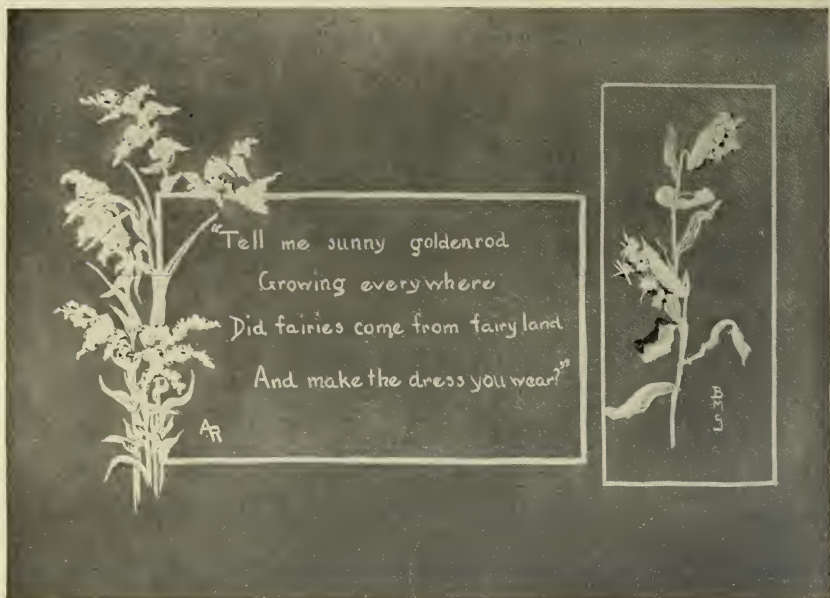 "Tell me sunny goldenrod
Growing everywhere
Did fairies come from fairy land
And make the dress you wear?"
AR